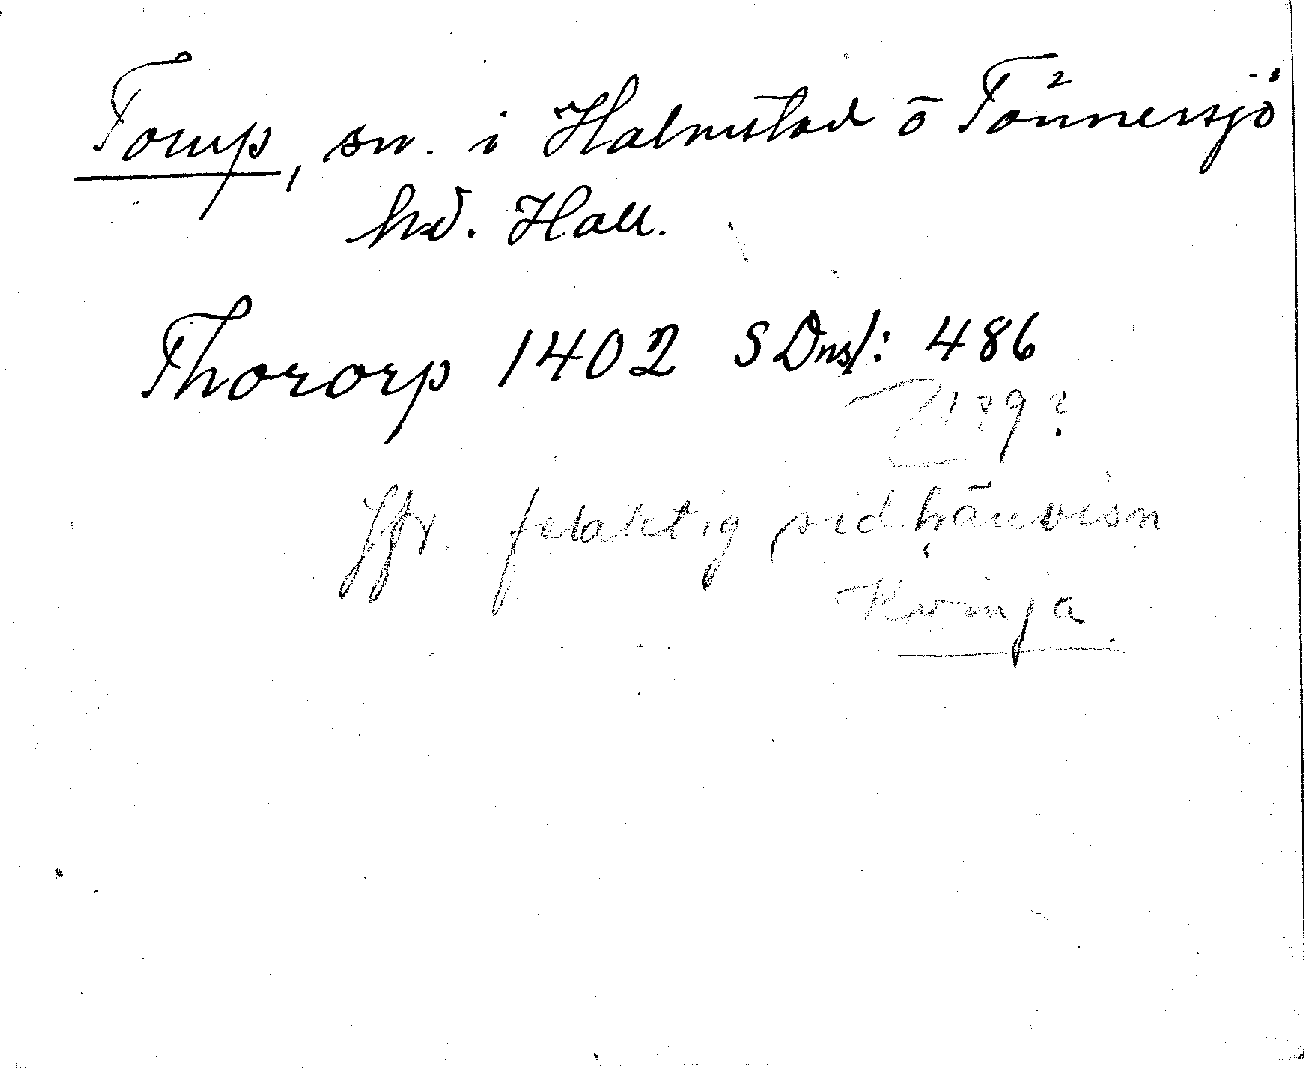 Torup, sn. i Halmstad o Tönnersjö
hd. Hall.
Thororp 1402 SDns1: 486
189?
Jfr. felaktig sidhänvisn
Kvinja